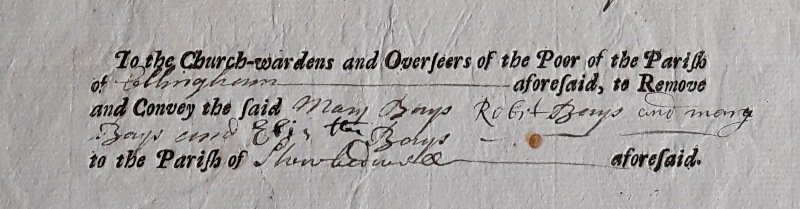 To the Church-wardens and Overſeers of the Poor of the Pariſh
of Ellingham aforeſaid, to Remove
and Convey the ſaid Mary Boys Robt Boys and mary
Boys and Eliz Boys
to the Pariſh of aforeſaid.